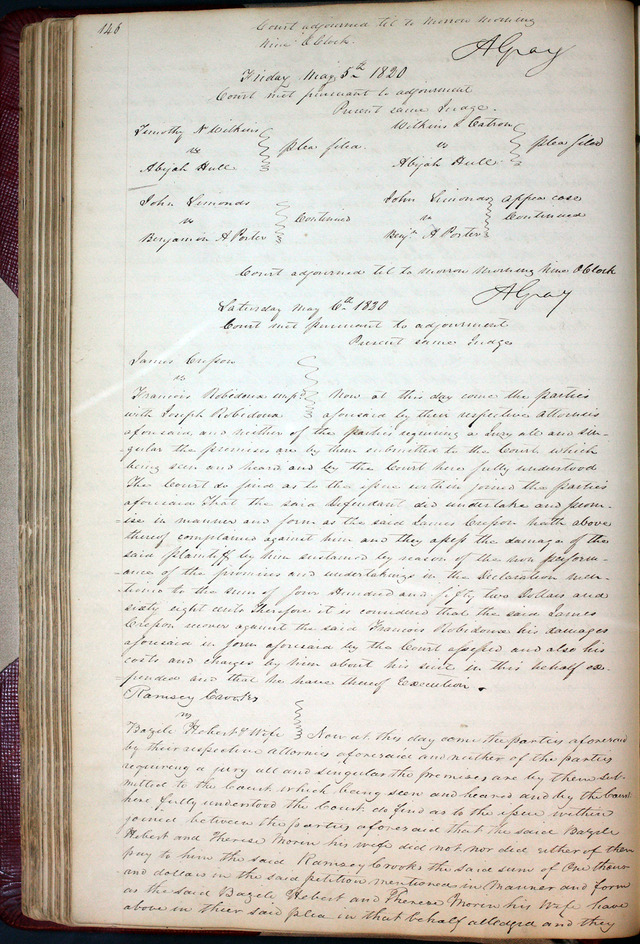 146
Court adjourned til to Morrow Morning
Nine O Clock.
A Gray
Friday May 5th 1820
Court met pursuant to adjournment
Present same Judge.
Timothy N Wilkins
vs
Abijah Hull
plea filed.
Wilkins & Catron
vs
Abijah Hull
plea filed
John Simonds
vs
Benjamin A Porter
Continued
John Simonds
vs
Benjn A Porter
appea case
Continued
Court adjourned til to Morrow Morning Nine O Clock
A Gray
Saturday May 6th 1820
Court met pursuant to adjournment
Present same Judge
James Cresson
vs
Francois Robidoux imp
with Joseph Robidoux
Now at this day come the parties
aforesaid by their respective attornies
aforesaid, and neither of the parties requiring a Jury all and sin-
gular the premises are by them submitted to the Court which
being seen and heard and by the Court here fully understood
The Court do find as to the issue within joined the parties
aforesaid That the said Defendant did undertake and prom-
=ise in manner and form as the said James Cresson hath above
thereof complained against him and they assess the damages of the
said plaintiff by him sustained by reason of the non perform-
=ance of the promises and undertakings in the Declaration men-
tioned to the sum of four Hundred and fifty two Dollars and
sixty eight cents Therefore it is considered that the said James
Cresson recover against the said Francois Robidoux his damages
aforesaid in form aforesaid by the Court assessed and also his
costs and charges by him about his suit in this behalf ex-
=pended and that he have thereof Execution.
Ramsey Crooks
vs
Bazele Hebert & Wife
Now at this day come the parties aforesaid
by their respective attornies aforesaid and neither of the parties
requireing a jury all and singular the premises are by them sub-
mitted to the Court which being seen and heared and by the Court
here fully understood the Court do find as to the issue within
joined between the parties aforesaid that the said Bazele
Hebert and Therese Morin his wife did not nor did either of them
pay to him the said Ramsey Crooks the said sum of One thous-
and dollars in the said petition mentioned in Manner and form
as the said Bazele Hebert and Therese Morin his Wife have
above in thier said plea in that behalf alledged and they